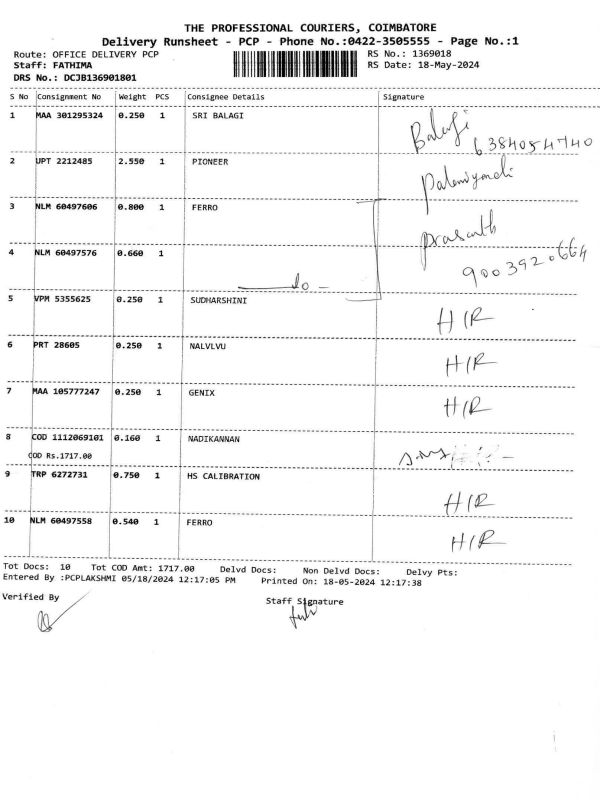 THE PROFESSIONAL COURIERS, COIMBATORE
Delivery Runsheet - PCP - Phone No.:0422-3505555 - Page No.:1
Route: OFFICE DELIVERY PCP RS No.: 1369018
Staff: FATHIMA RS Date: 18-May-2024
DRS No.: DCJB136901801
S No Consignment No Weight PCS Consignee Details Signature
1 MAA 301295324 0.250 1 SRI BALAGI Balagi
6384054740
2 UPT 2212485 2.550 1 PIONEER
3 NLM 60497606 0.800 1 FERRO Prasanth
4 NLM 60497576 0.660 1 9003920664
do -
5 VPM 5355625 0.250 1 SUDHARSHINI H/R
6 PRT 28605 0.250 1 NALVLVU H/R
7 MAA 105777247 0.250 1 GENIX H/R
8 COD 1112069101 0.160 1 NADIKANNAN
COD Rs.1717.00
9 TRP 6272731 0.750 1 HS CALIBRATION H/R
10 NLM 60497558 0.540 1 FERRO H/R
Tot Docs: 10 Tot COD Amt: 1717.00 Delvd Docs: Non Delvd Docs: Delvy Pts:
Entered By :PCPLAKSHMI 05/18/2024 12:17:05 PM Printed On: 18-05-2024 12:17:38
Verified By Staff Signature